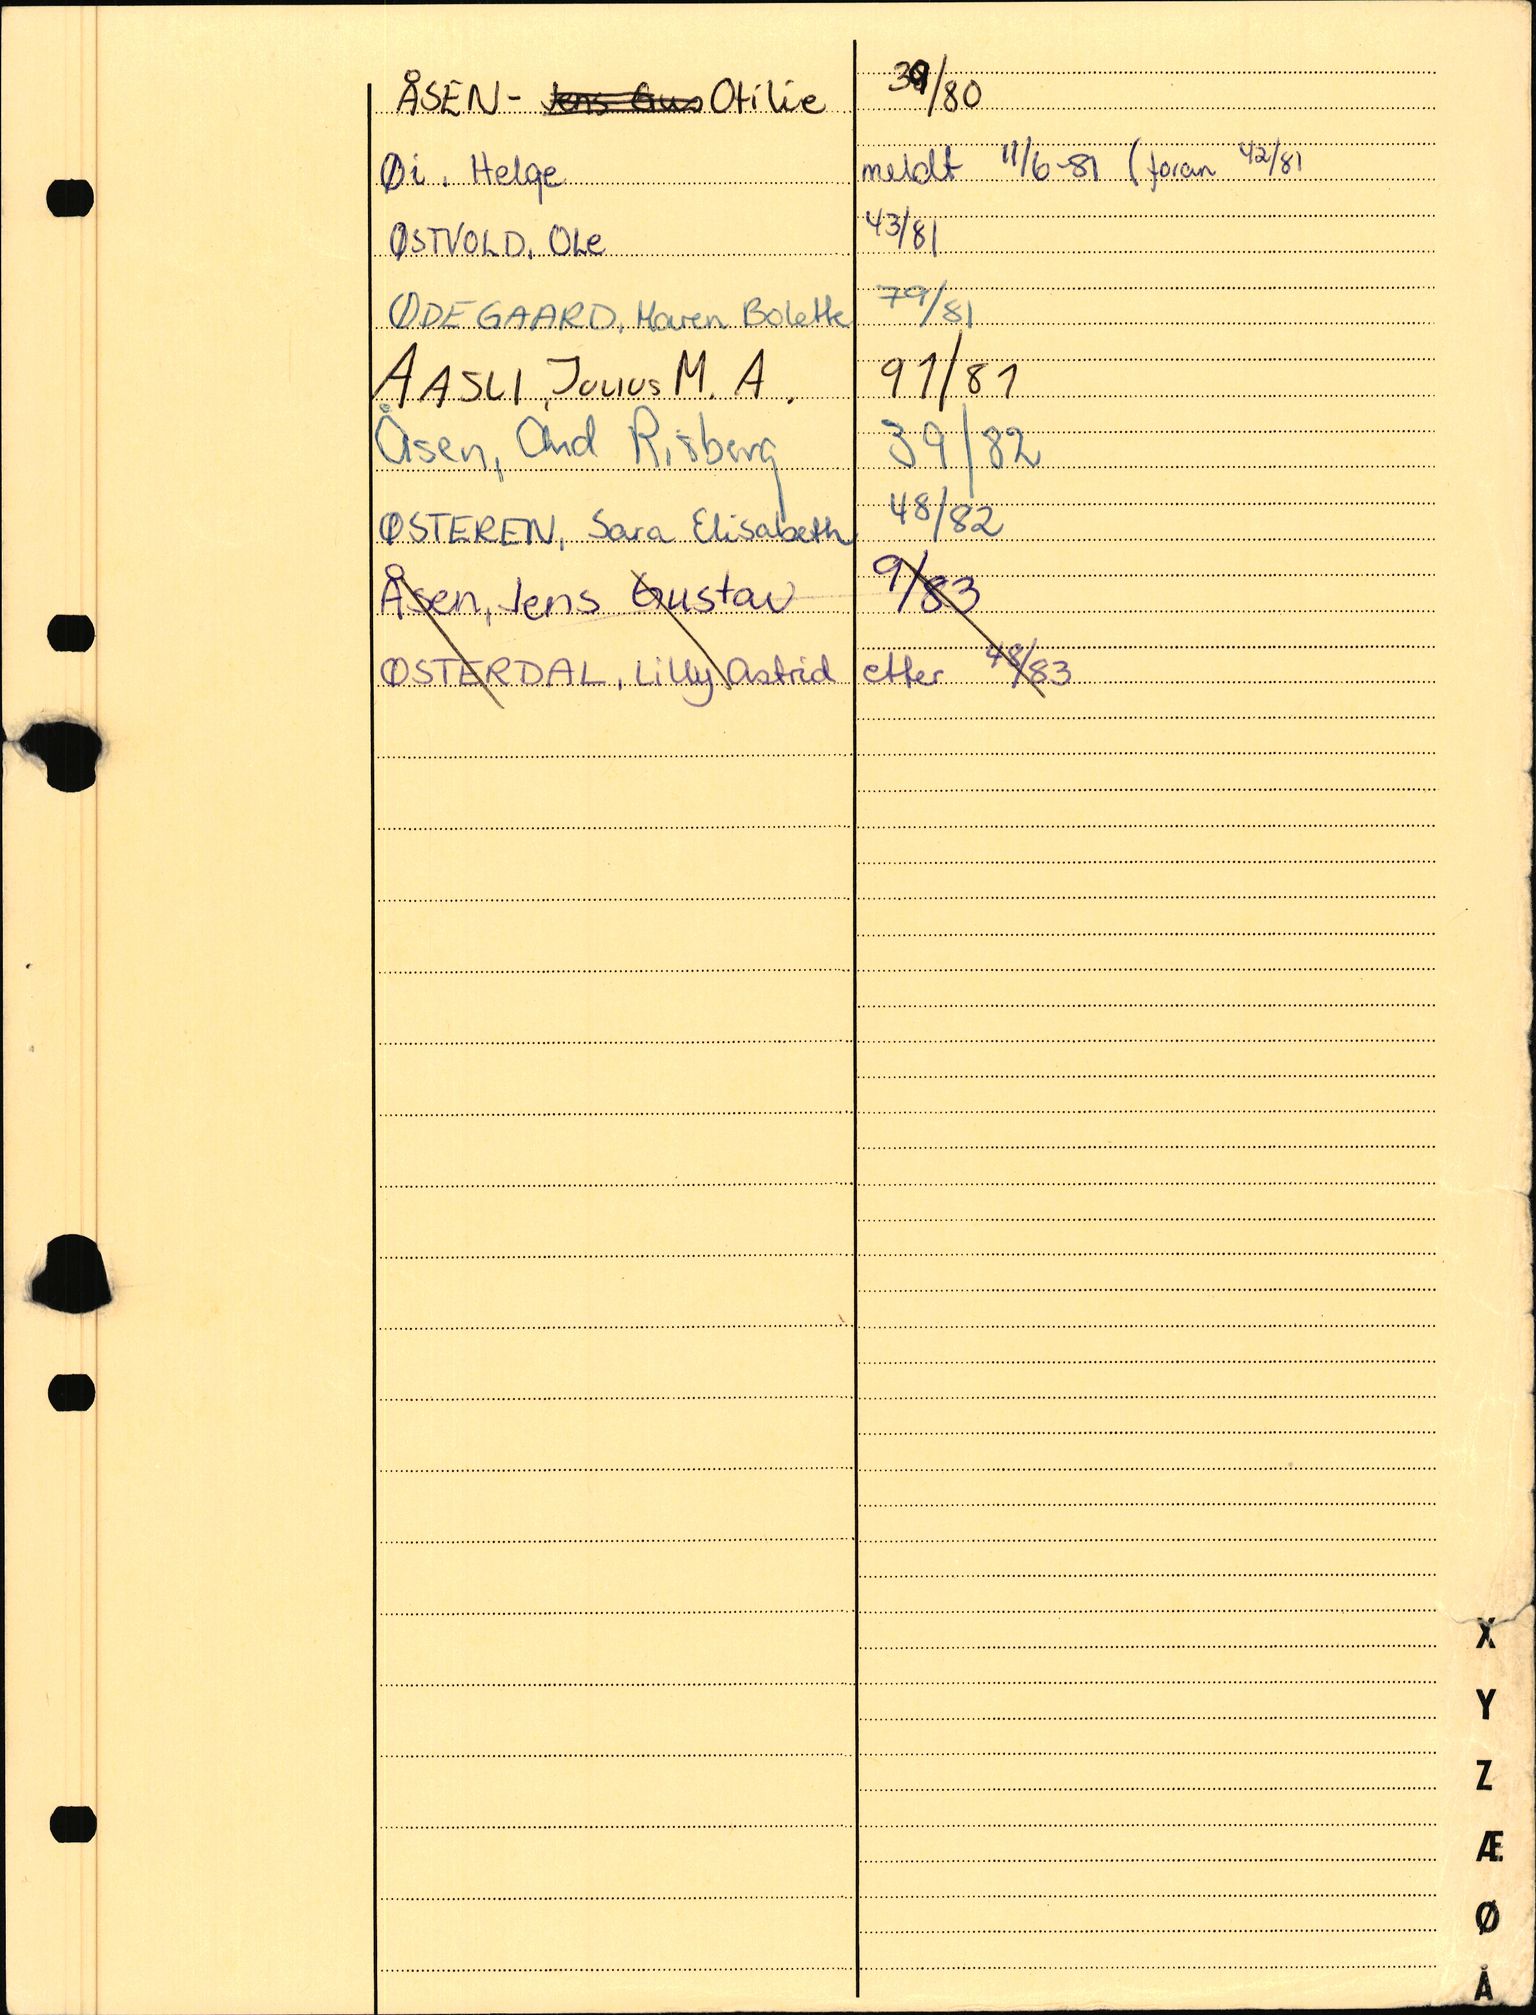 ÅSEN - Jens Gus Otilie 39/80
Øi. Helge meldt 11/6-81 (foran 42/81
ØSTVOLD, OLe 43/81
ØDEGAARD, Maren Bolette 79/81
AASLI, Julius M. A. 91/81
Åsen, Risberg 39/82
ØSTEREN, Sara Elisabeth 48/82
Åsen, Jens Gustav 9/83
ØSTERDAL, Lilly Astrid etter 48/83
X
Y
Z
Æ
Ø
Å